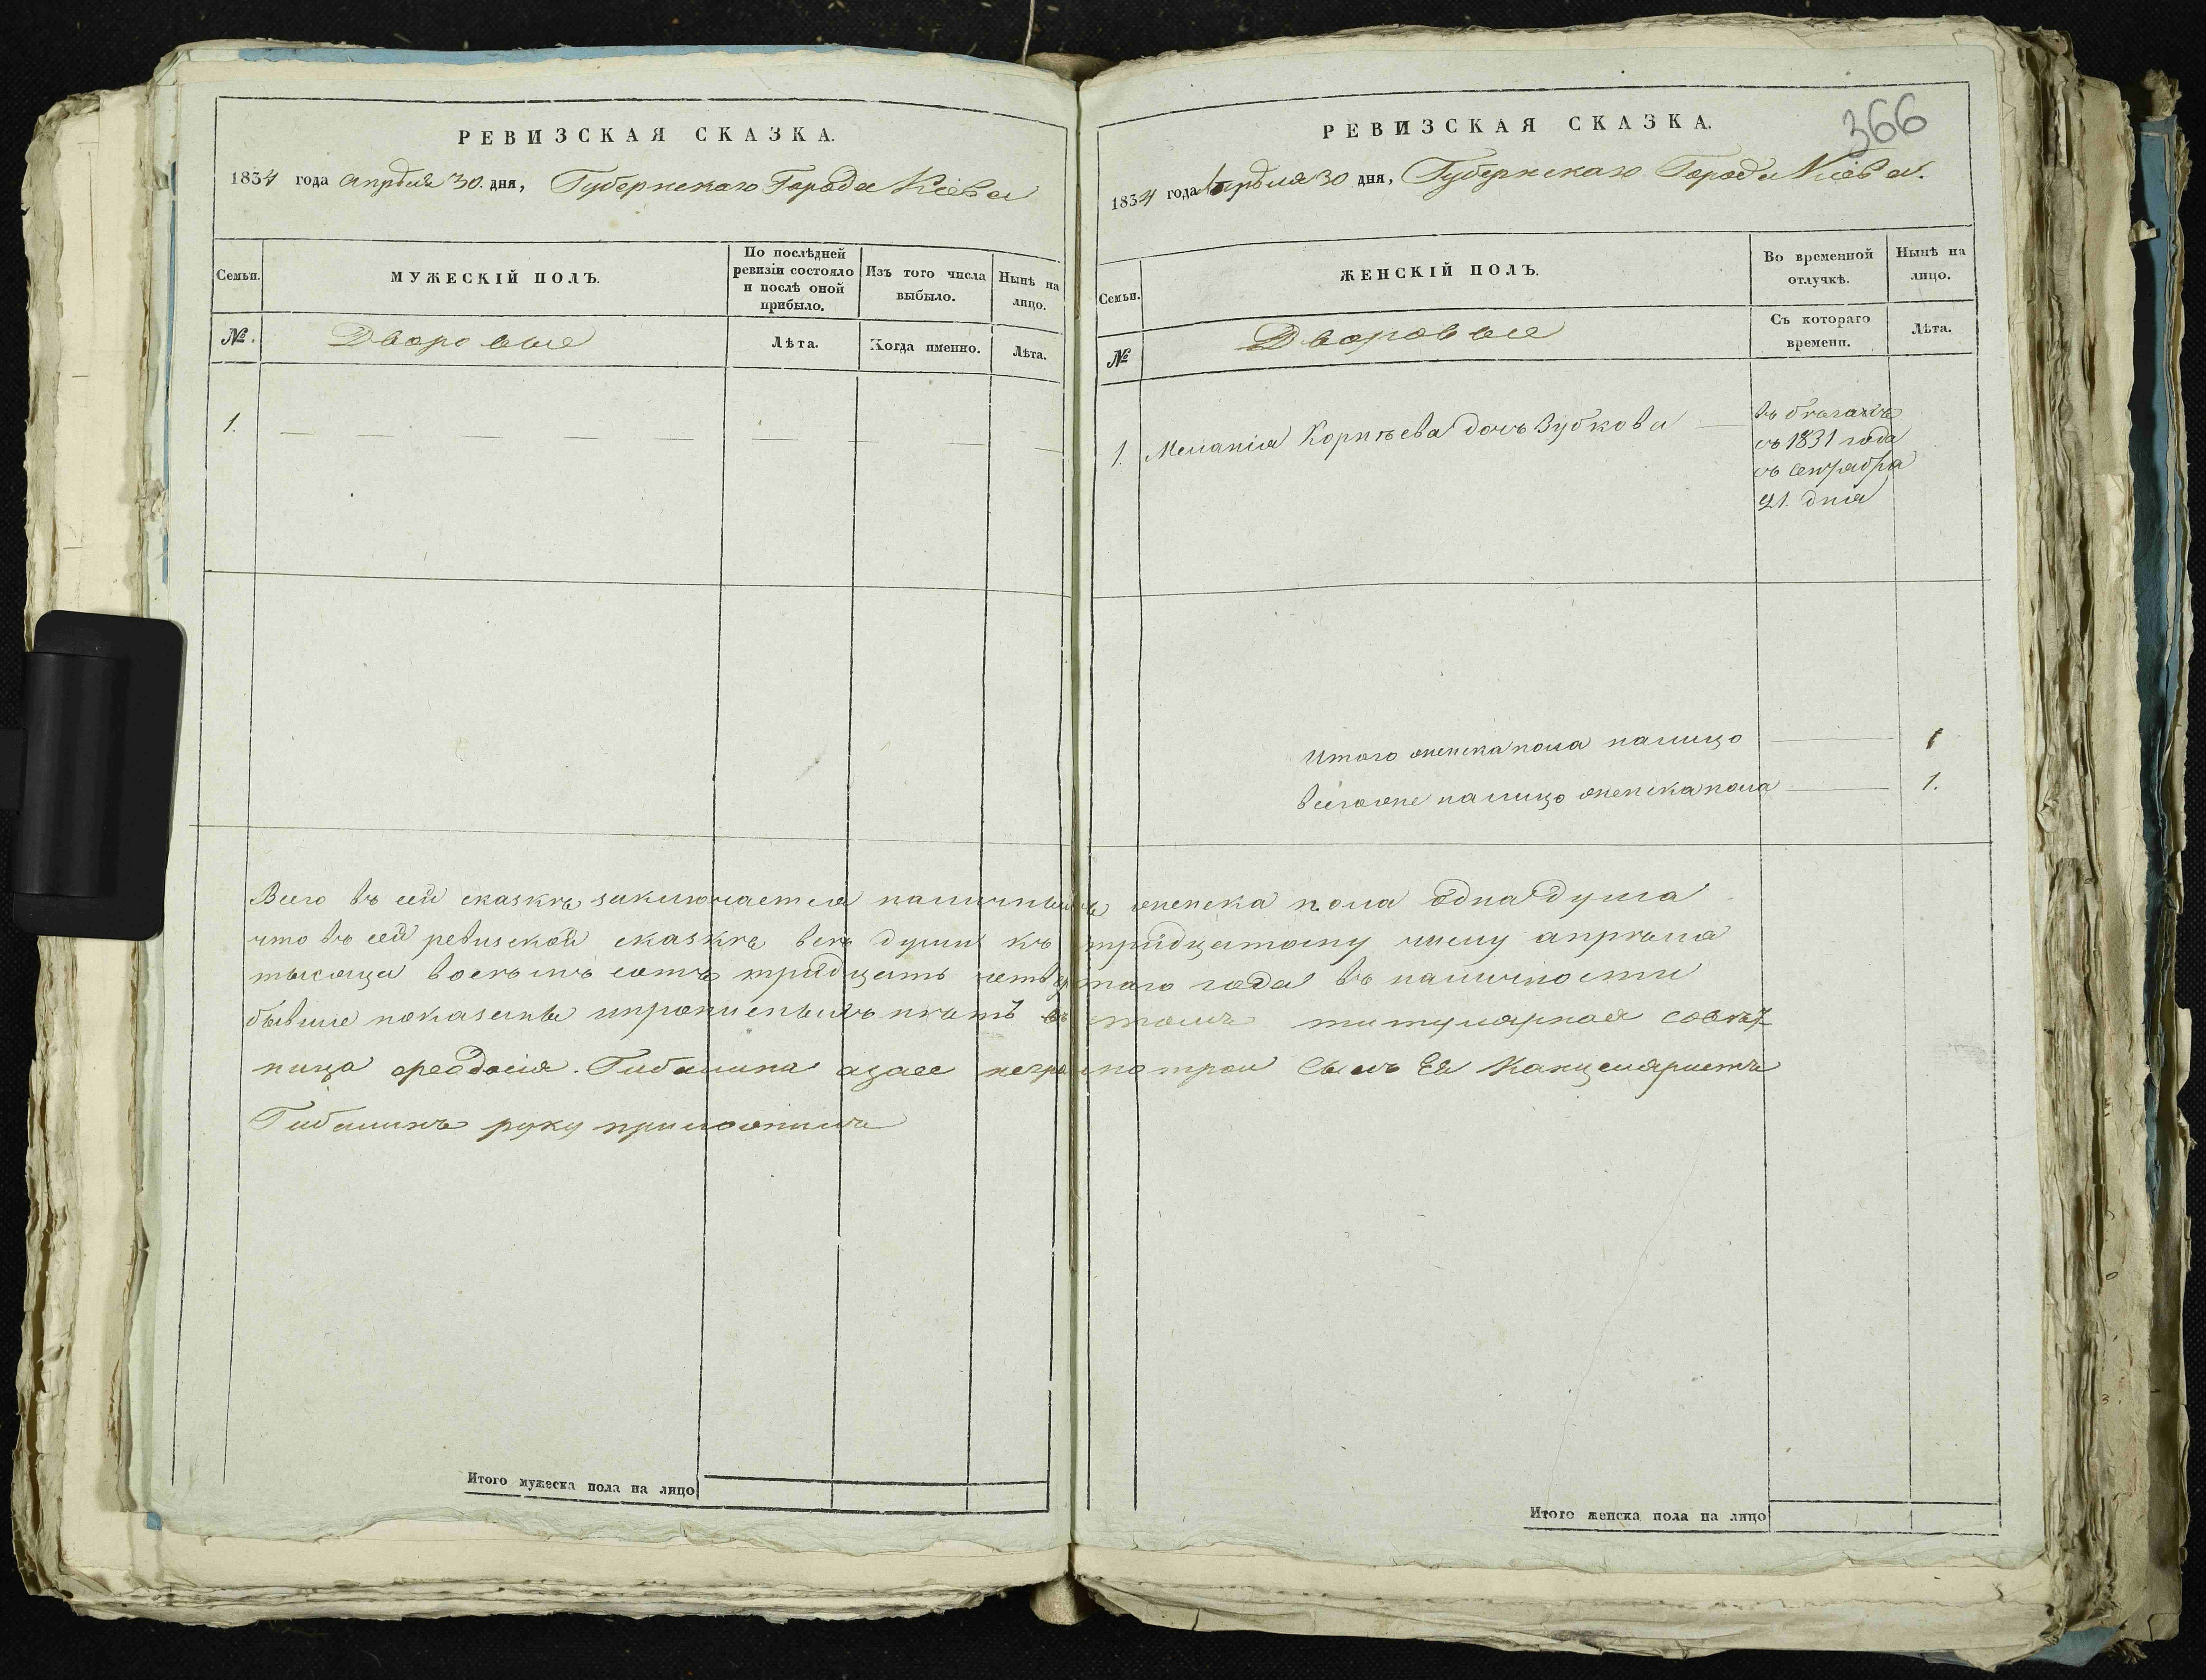 РЕВИЗСКАЯ СКАЗКА.
1834 года Апрѣля 30. дня, Губернскаго Города Кіева
Семьи.
МУЖЕСКІЙ ПОЛЪ.
По послѣдней ревизіи состояло и послѣ оной прибыло.
Изъ того числа выбыло.
Нынѣ на лицо.
№.
Дворовые
Лѣта.
Когда именно.
Лѣта.
1.
366
РЕВИЗСКАЯ СКАЗКА.
1834 года Апрѣля 30 дня, Губернскаго Города Кіева.
Семьи.
ЖЕНСКІЙ ПОЛЪ.
Во временной отлучкѣ.
Нынѣ на лицо.
№
Дворовые
Съ котораго времени.
Лѣта.
1. Меланія Корнѣева дочь Зубкова
въ бѣгахъ
съ 1831 года
съ Сентября
21. дня
Итого женска пола налицо 1
Всегоже налицо женска пола 1.
Всего въ сей сказкѣ заключается наличныхъ женска пола одна душа
что въ сей ревиской сказкѣ всѣ души къ тридцатому числу апрѣля
тысяща восемь сотъ тридцать четвертаго года въ наличности
бывшие показаны ипрописныхъ нѣтъ въ томъ титулярная совѣт
ница Феадосія. Гибалина азаее неграмотрой Сынъ Ея Канцеляристъ
Гибалинъ руку приложилъ
Итого мужеска пола на лицо
Итого женска пола на лицо